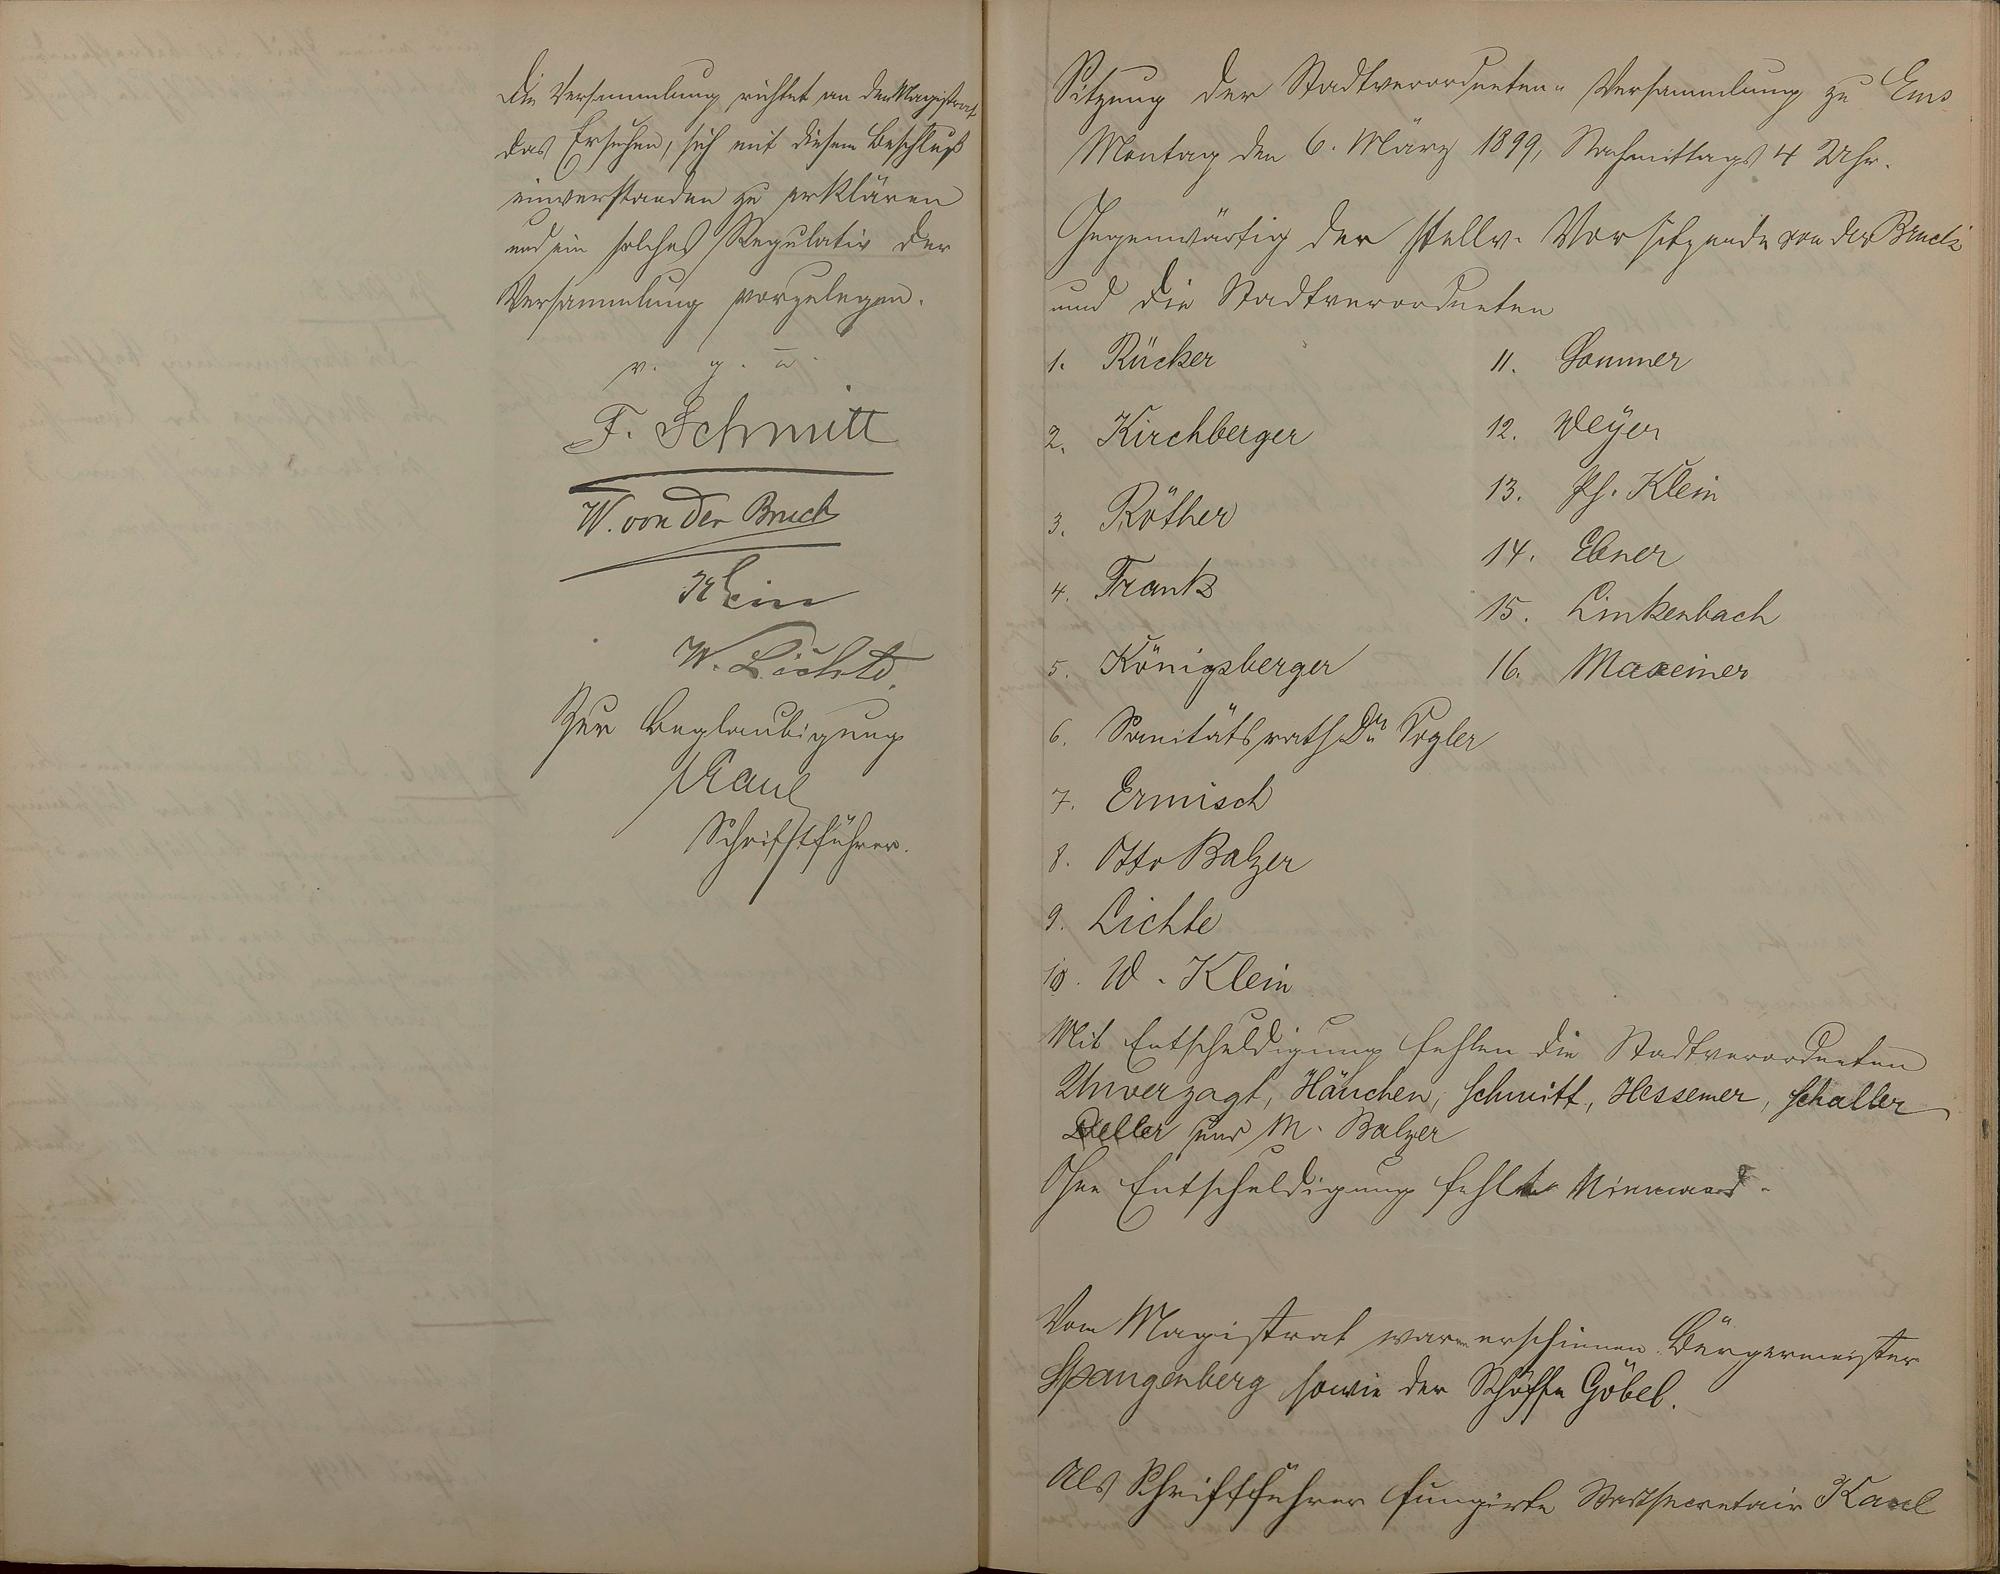 Die Versammlung richtet an den Magistrat
das Ersuchen, sich mit diesem Beschluß
einverstanden zu erklären
und ein solches Regulativ der
Versammlung vorzulegen.
v. g. u.
F. Schmitt
W. von der Bruck
Klein
W. Lichte
Zur Beglaubigung
Kaul
Schriftführer.
Sitzung der Stadtverordneten-Versammlung zu Ems
Montag den 6. März 1899, Nachmittags 4 Uhr.
Gegenwärtig der stellv. Vorsitzende von der Bruck
und die Stadtverordneten
1. Rücker
2. Kirchberger
3. Röther
4. Frank
5. Königsberger
6. Sanitätsrath Dr. Vogler
7. Ermisch
8. Otto Balzer
9. Lichte
10. W. Klein
11. Sommer
12. Weyer
13. Ph. Klein
14. Ebner
15. Linkenbach
16. Maxeiner
Mit Entschuldigung fehlen die Stadtverordneten
Unverzagt, Hänchen, Schmitt, Hessemer, Schaller
und M. Balzer
Ohne Entschuldigung fehlte Niemand.
Vom Magistrat waren erschienen Bürgermeister
Spangenberg sowie der Schöffe Göbel.
Als Schriftführer fungirte Stadtsecretair Kaul